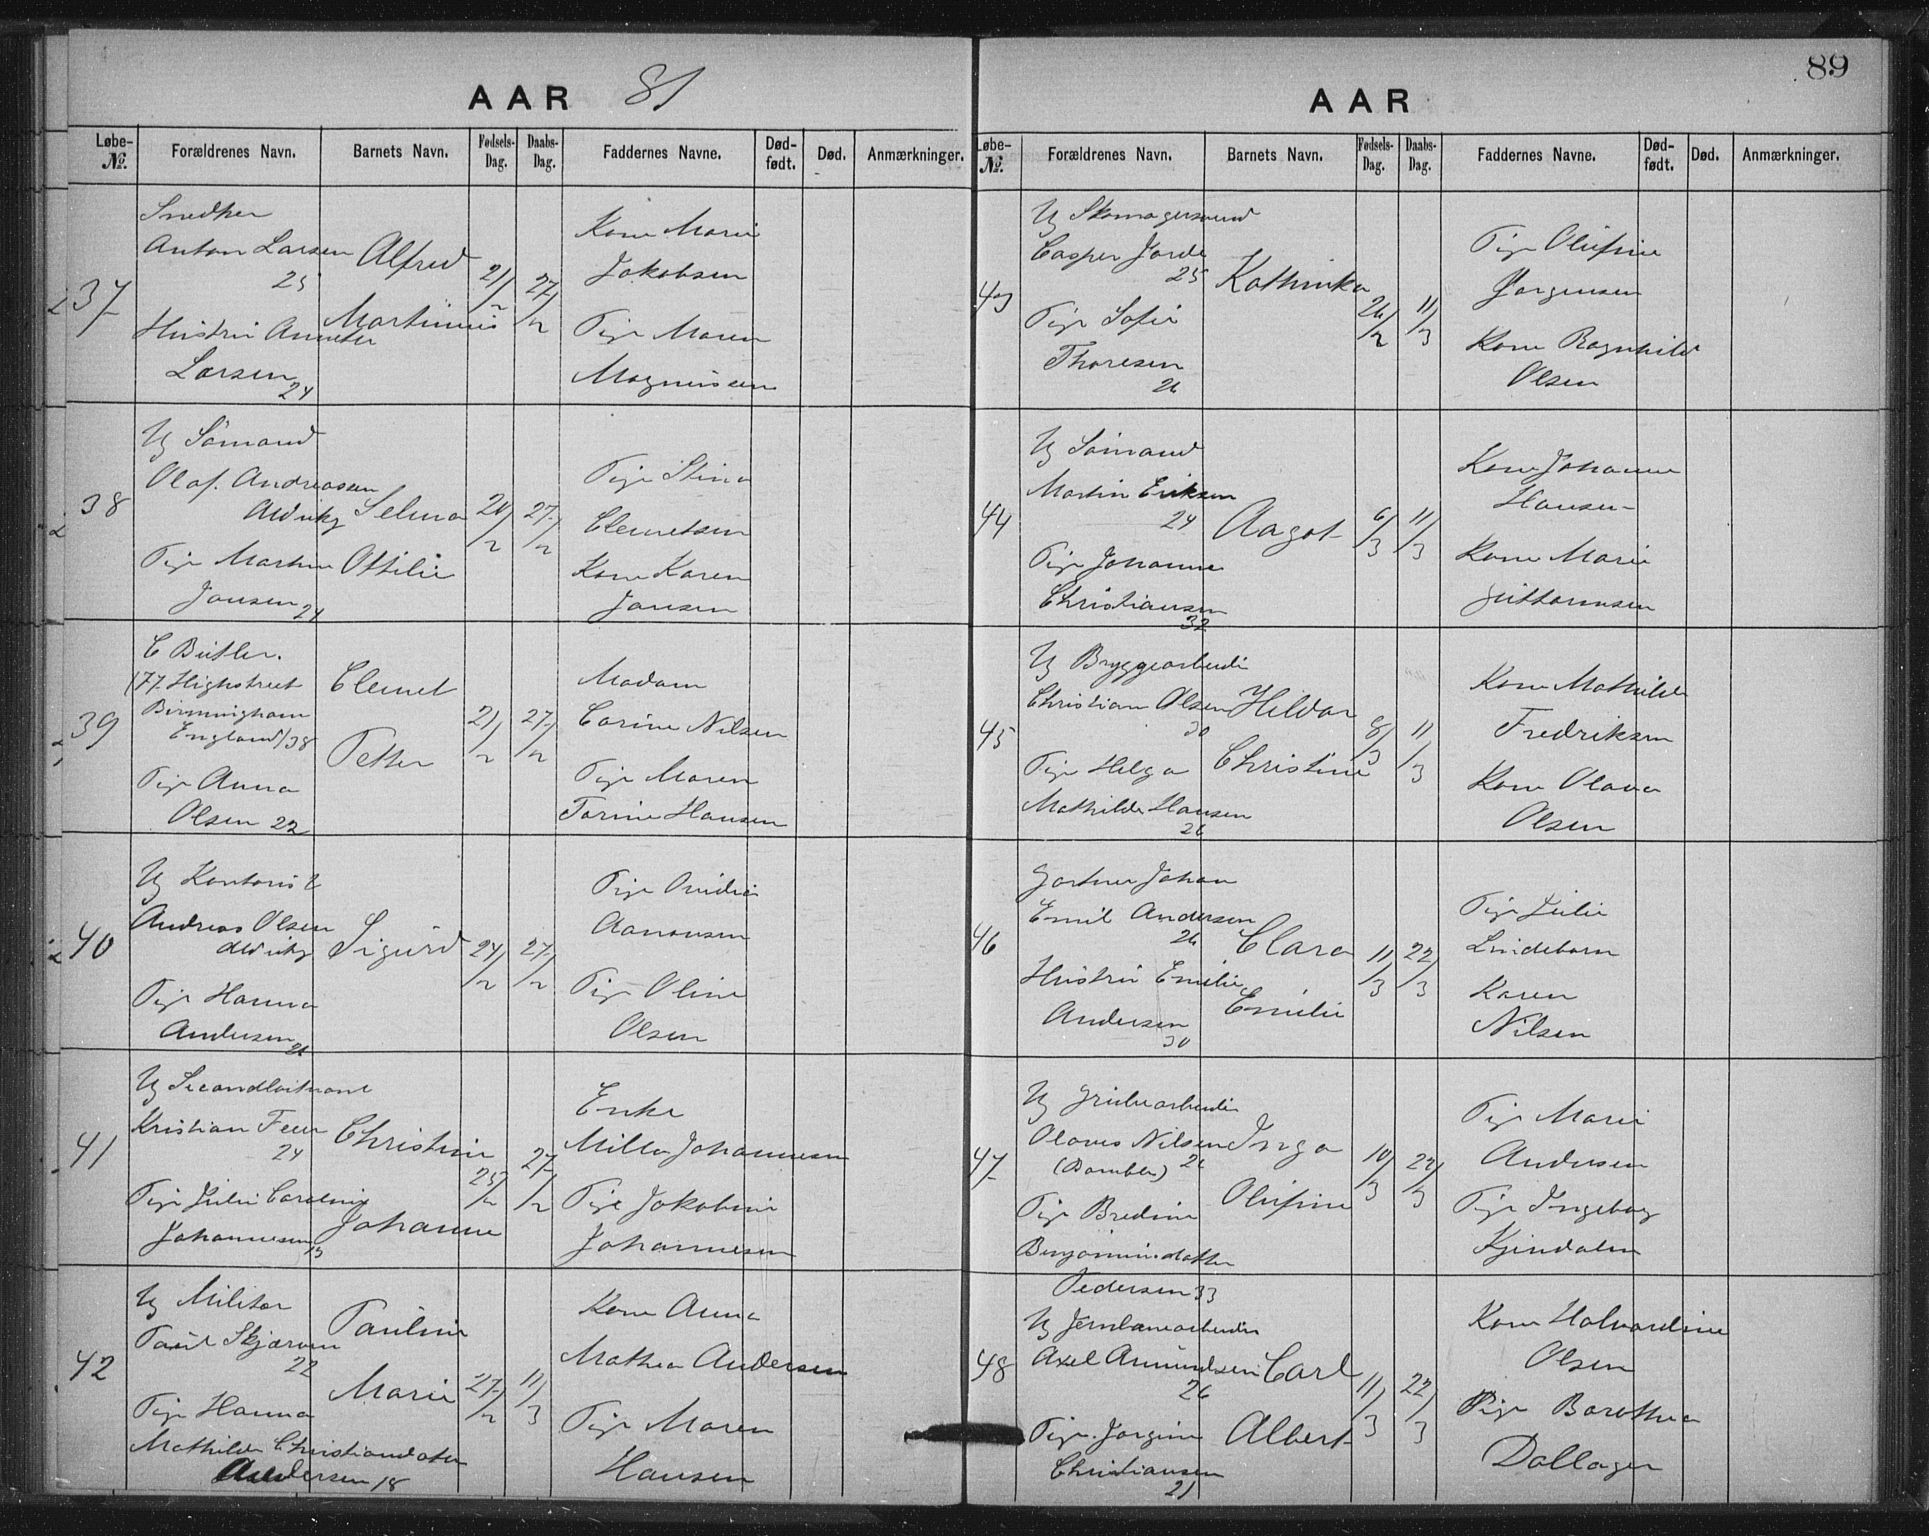 AAR 81
Løbe-№. Forældrenes Navn. Barnets Navn. Fødsels-Dag. Daabs-Dag. Faddernes Navne. Død-født. Død. Anmærkninger.
37
Snedker
Anton Larsen
25
Hustru Annette
Larsen 24
Alfred
Martinius
21/2
27/2
Kone Marie
Jakobsen
Pige Maren
Magnussen
38
Ug Sømand
Olaf Andreassen
Alder ubg
Pige Martine
Jansen 24
Selma
Ottilie
20/2
27/2
Pige Stina
Clemetsen
Kone Karen
Jansen
39
C Butler.
177 Highstreet
Birmingham
England/38
Pige Anna
Olsen 22
Clemet
Petter
21/2
27/2
Madam
Carine Nilsen
Pige Maren
Torine Hansen
40
Ug Kontorist
Andreas Olsen
Alder ubg
Pige Hanna
Andersen
Sigurd
24/2
27/2
Pige Ovidia
Aanonsen
Pige Oline
Olsen
41
Ug Secondløitnant
Kristian Feer
24
Pige Julie Caroline
Johannesen
Christine
Johanne
25/2
27/2
Enke
Milla Johannesen
Pige Jakobine
Johannesen
42
Ug Militær
Paul Skjærven
22
Pige Hanna
Mathilde Christiansdatter
Andersen 18
Pauline
Marie
27/2
11/3
Kone Anna
Mathea Andersen
Pige Maren
Hansen
89
AAR
Løbe-№. Forældrenes Navn. Barnets Navn. Fødsels-Dag. Daabs-Dag. Faddernes Navne. Død-født. Død. Anmærkninger.
43
Ug Skomagersvend
Casper Jorde
25
Pige Sofie
Thoresen
26
Kathinka
26/2
11/3
Pige Olufine
Jørgensen
Kone Ragnhild
Olsen
44
Ug Sømand
Martin Eriksen
24
Pige Johanne
Christiansen
32
Aagot
6/3
11/3
Kone Johanne
Hansen
Kone Marie
Guttormsen
45
Ug Bryggearbeider
Christian Olsen
30
Pige Helga
Mathilde Hansen
26
Hildar
Christine
8/3
11/3
Kone Mathilde
Fredriksen
Kone Olava
Olsen
46
Gartner Johan
Emil Andersen
26
Hustru Emilie
Andersen
30
Clara
Emilie
11/3
22/3
Pige Julie
Lindeborn
Karen
Nilsen
47
Ug Grubearbeider
Olaves Nilsen
(Bamble) 26
Pige Bredine
Benjaminsdatter
Pedersen 33
Inga
Olufine
10/3
22/3
Pige Marie
Andersen
Pige Ingeborg
Kjendalen
48
Ug Jernbanearbeider
Axel Amundsen
26
Pige Jørgine
Christiansen
21
Carl
Albert
11/3
22/3
Kone Halvardine
Olsen
Pige Barethea
Dallager